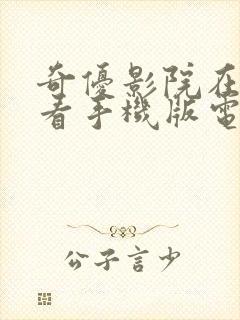 奇優影院在
看手機版電
公子言少